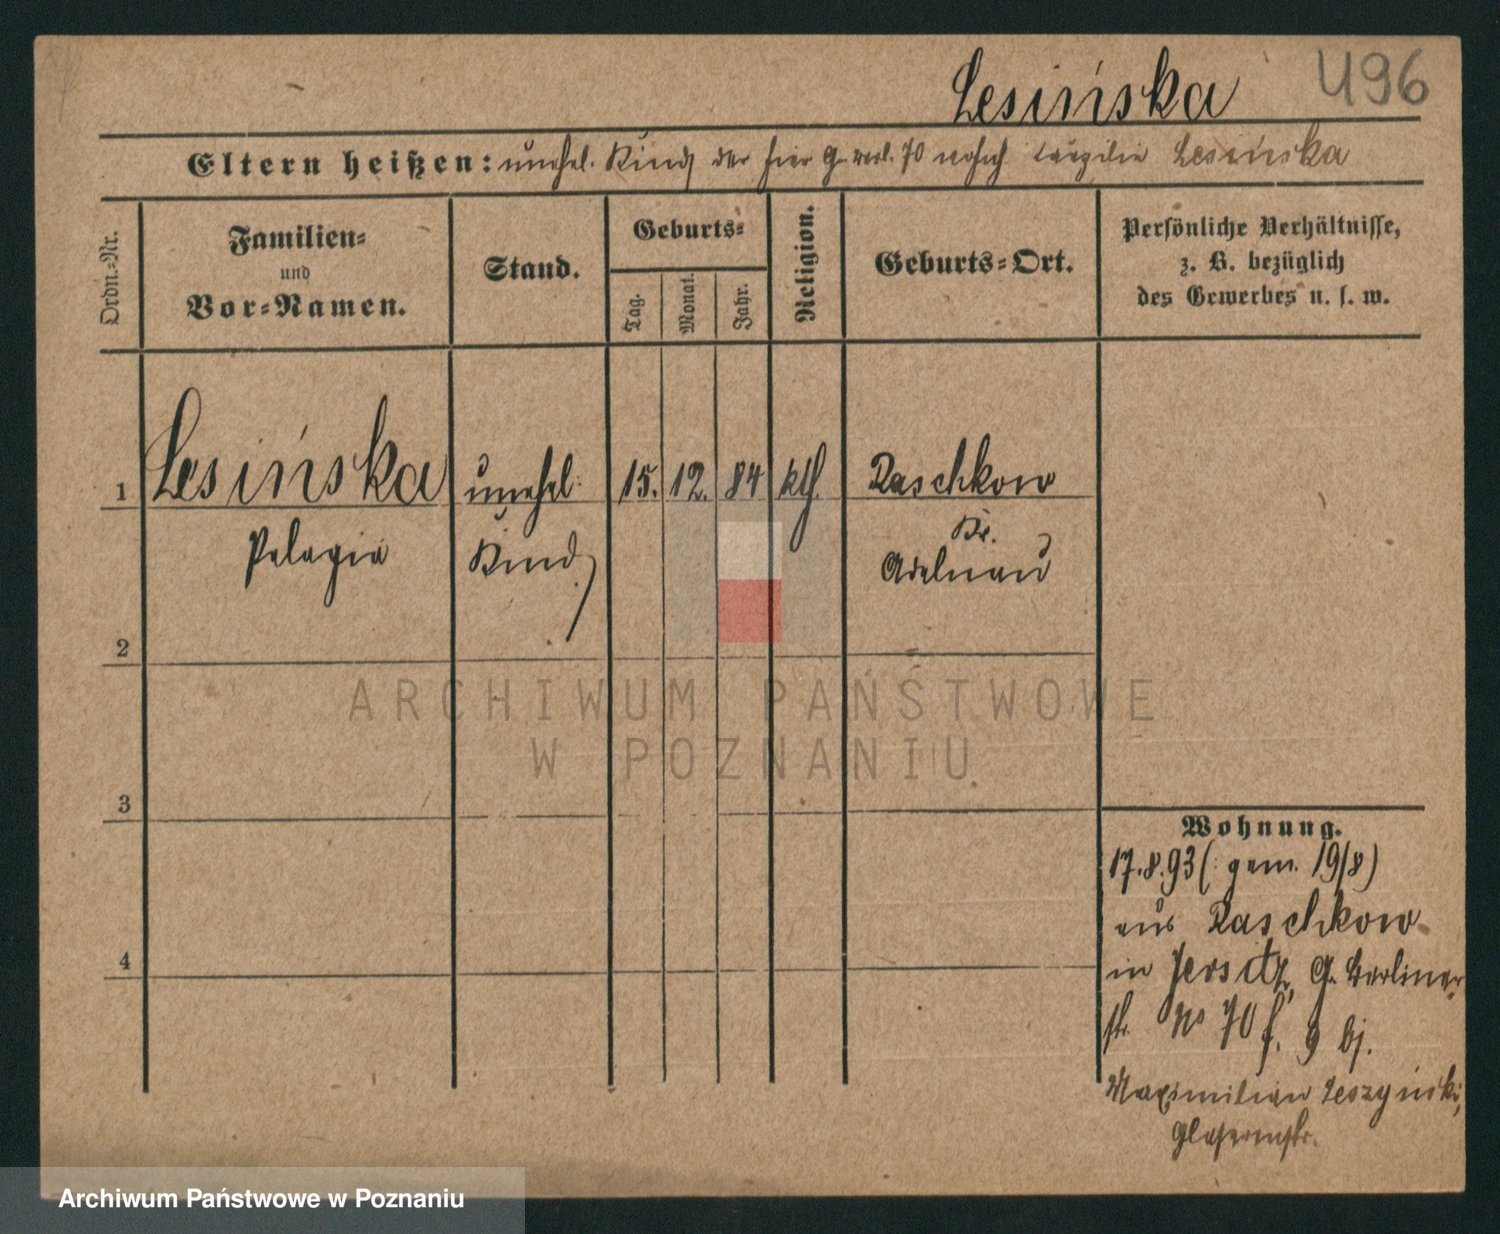 Lesińska
496
Eltern heißen: unehel. Kind der hier G. Berl. 70 wohnh. Cäzilie Lesińska
Ordn.-Nr.
Familien-
und
Vor-Namen.
Stand.
Geburts-
Tag.
Monat.
Jahr.
Religion.
Geburts-Ort.
Persönliche Verhältnisse,
z. B. bezüglich
des Gewerbes u. s. w.
1 Lesińska unehel. 15. 12. 84 kth. Raschkow
Pelagia Kind Kr.
Adelnau
2
ARCHIWUM PAŃSTWOWE
W POZNANIU
3
Wohnung.
17.8.93 (: gem. 19/8)
aus Raschkow
4
in Jersitz, G. Berliner-
str. No 70 bj.
Maximilian Leszyński,
Archiwum Państwowe w Poznaniu